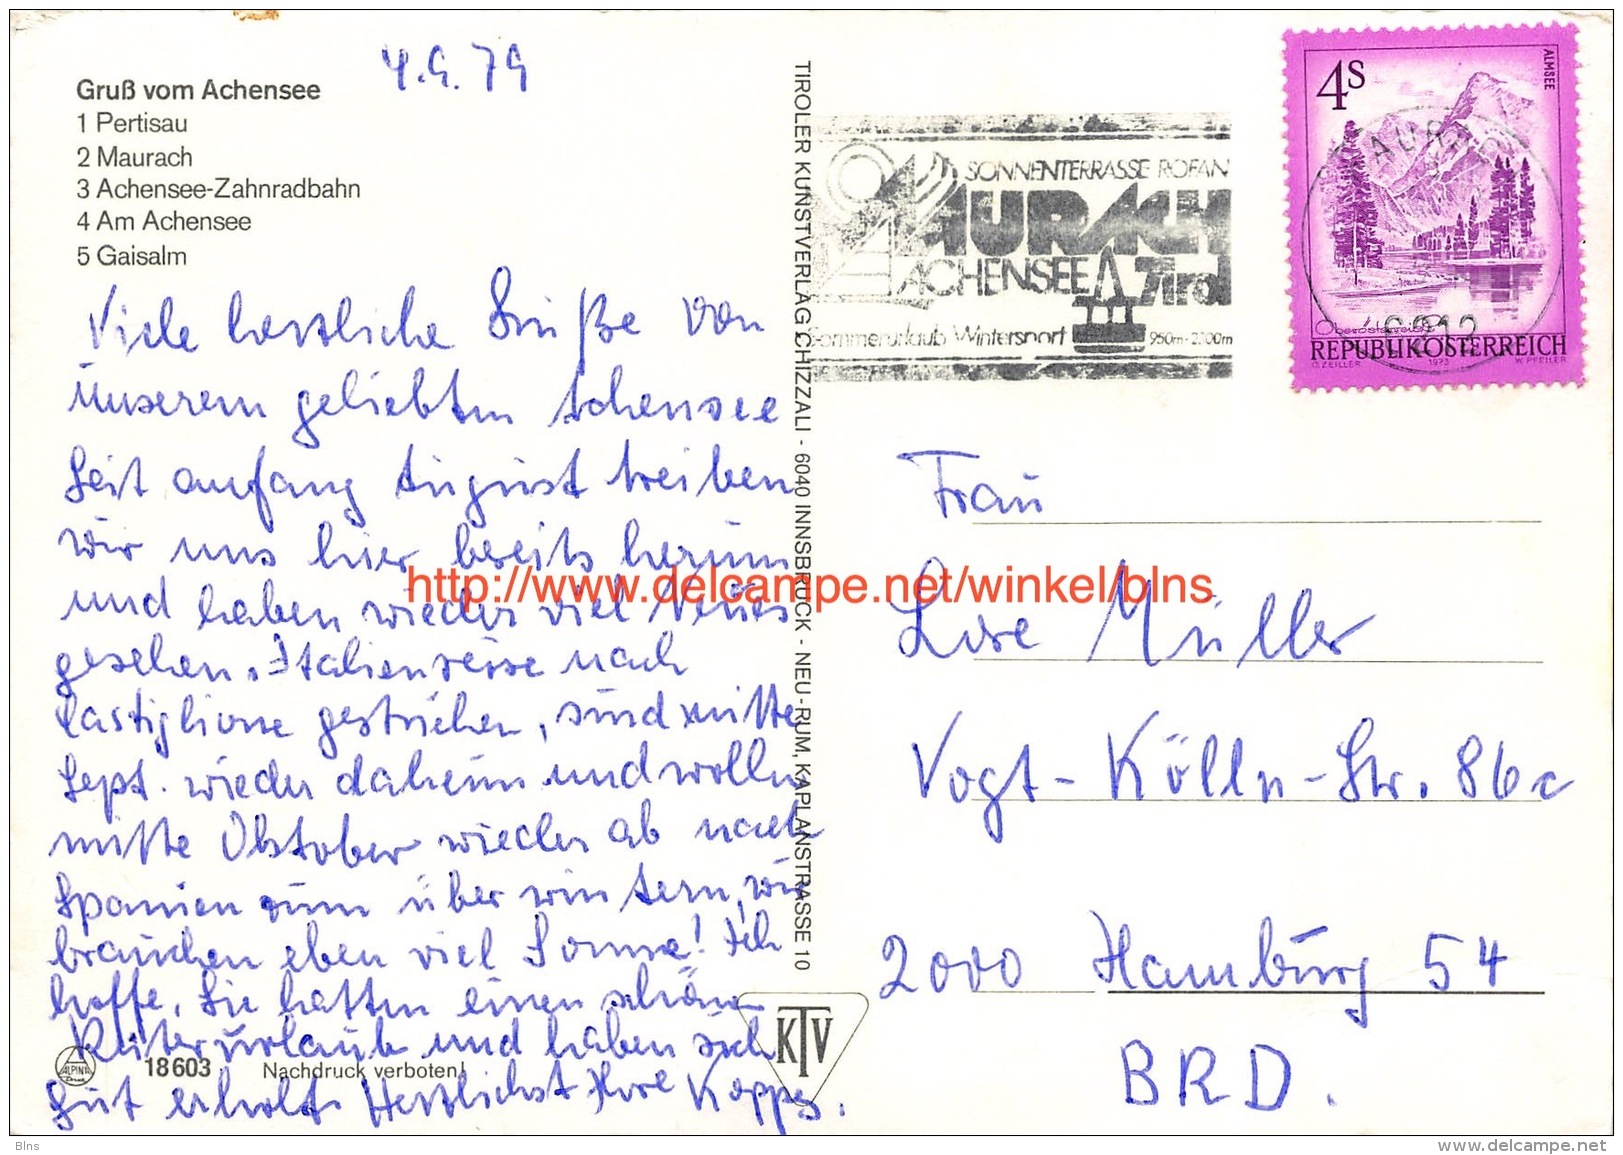 4.9.79
Gruß vom Achensee
1 Pertisau
2 Maurach
3 Achensee-Zahnradbahn
4 Am Achensee
5 Gaisalm
Viele herzliche Grüße von
unserem geliebten Achensee
Seit anfang August treiben
wir uns hier bereits herum
und haben wieder viel Neues
gesehen. Italienreise nach
Castiglione gestrichen, sind mitte
Sept. wieder daheim und wollen
mitte Oktober wieder ab nach
Spanien zum überwintern, wir
brauchen eben viel Sonne! Ich
hoffe, Sie hatten einen schönen
Reiterurlaub und haben sich
gut erholt. Herzlichst Ihre Kopps.
ALPINA
18603
Nachdruck verboten!
TIROLER KUNSTVERLAG CHIZZALI - 6040 INNSBRUCK - NEU-RUM, KAPLANSTRASSE 10
KTV
SONNENTERRASSE ROFAN
MAURACH
ACHENSEE Tirol
Sommerurlaub Wintersport 950m-2300m
4S
ALMSEE
MAURACH
6212
Oberösterreich
REPUBLIK ÖSTERREICH
O. ZEILLER 1973 W. PFEILER
Frau
Lore Müller
Vogt-Kölln-Str. 86c
2000 Hamburg 54
BRD.
http://www.delcampe.net/winkel/blns
Blns
www.delcampe.net